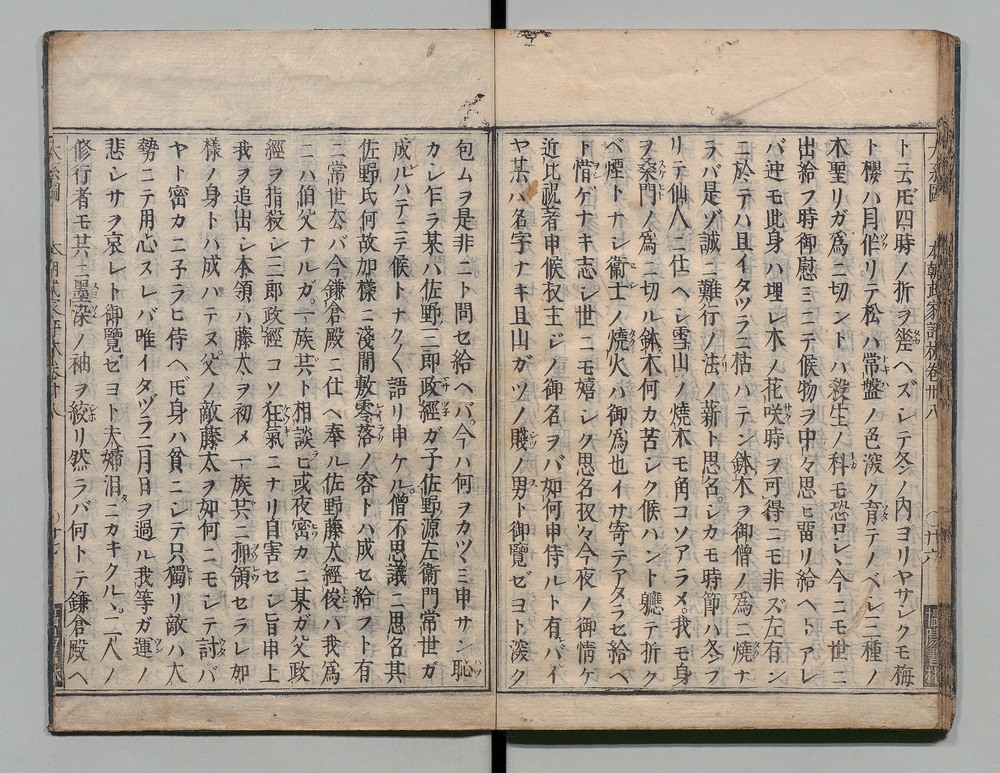 ト云ドモ四時ノ折ヲ發ヘズシテ冬ノ内ヨリヤサシクモ梅
ト櫻ハ月伴リテ松ハ常盤ノ色深ク育テノベシ二種ノ
木聖リガ爲ニ切ントハ殺生ノ科モ恐ロシ、今ニモ世ニ
出給フ時御慰ミニテ候物ヲ中々思ヒ畱リ給ヘトアレ
バ迚モ此身ハ埋レ木ノ花咲時ヲ可得ニモ非ズ左有ン
ニ於テハ且イタヅラニ枯ハテン鉢木ヲ御僧ノ爲ニ燒ナ
ラバ是ゾ誠ニ難行ノ法ノ薪ト思召。シカモ時節ハ冬フ
リテ仙人ニ仕ヘシ雪山ノ燒木モ角コソアラメ。我モ身
ヲ桑門ノ爲ニ切ル鉢木何カ苦シク候ハント軈テ折ク
ベ煙トナシ衞士ノ燒火ハ御爲也イサ寄テアタラセ給ヘ
ト惜ゲナキ志シ世ニモ嬉シク思名扠々今夜ノ御情ケ
近比祝着申候扠主ジノ御名ヲバ如何申侍ルト有バイ
ヤ某ハ名字ナキ且山ガツノ賤男ト御覽ゼヨト深ク
包ムヲ是非ニト問セ給ヘバ。今ハ何ヲカツヽミ申サン恥
カシ乍ラ某ハ佐野三郎政經ガ子佐野源左衞門常世ガ
成ルハテニテ候トナク〱語リ申ケル。僧不思議ニ思名其
佐野氏何故加樣ニ淺間敷零落ノ容トハ成セ給フト有
ニ常世玄バ今鎌倉殿ニ仕ヘ奉ル佐野藤太經俊ハ我爲
ニハ伯父ナルガ。一族共ト相談ヒ或夜密カニ某ガ父政
經ヲ指殺シ三郎政經コソ狂氣ニナリ自害セシ旨申上
我ヲ追出シ本領ハ藤太ヲ初メ一族共ニ押領セラレ如
樣ノ身トハ成ハテヌ。父ノ敵藤太ヲ如何ニモシテ討バ
ヤト密カニ子ラヒ侍ヘドモ身ハ貧ニシテ只獨リ敵ハ大
勢ニテ用心スレバ唯イタヅラニ月日ヲ過ル我等ガ運ノ
悲シサヲ哀レト御覽ゼヨト夫婦泪ニカキクル、。二人ノ
修行者モ其ニ墨染ノ袖ヲ絞リ然ラバ何トテ鎌倉殿ヘ